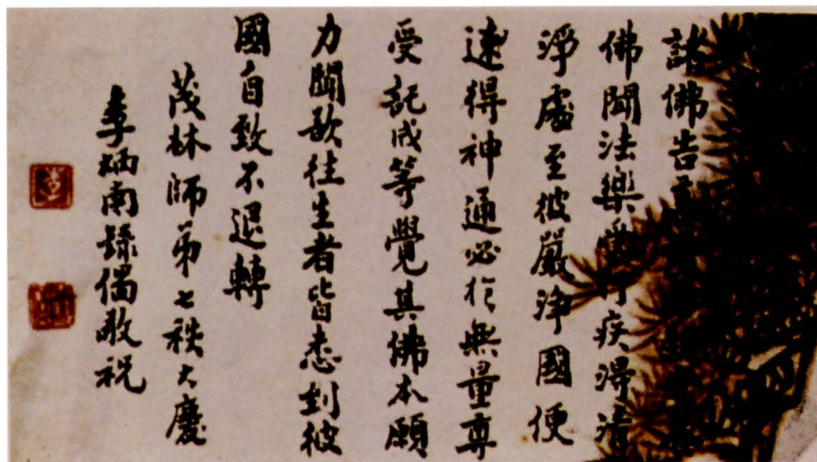 諸佛告
佛聞法樂 行疾得清
淨處至彼嚴淨國便
速得神通必於無量尊
受記成等覺其佛本願
力聞欲往生者皆悉到彼
國自致不退轉
茂林師弟七秩大慶
李炳南錄偈敬祝